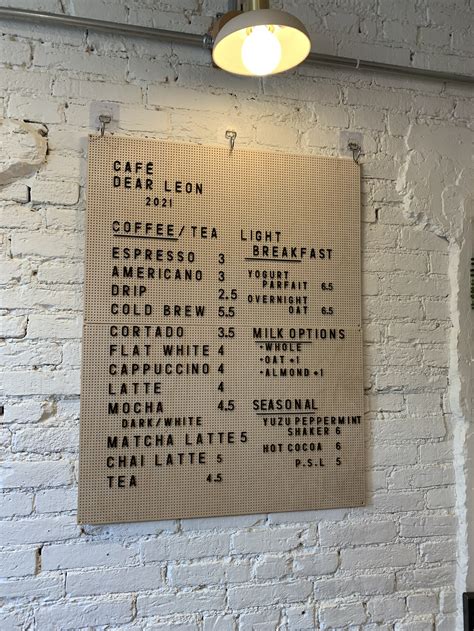 CAFÉ
DEAR LEON
2021
COFFEE/TEA
ESPRESSO 3
AMERICANO 3
DRIP 2.5
COLD BREW 5.5
CORTADO 3.5
FLAT WHITE 4
CAPPUCCINO 4
LATTE 4
MOCHA 4.5
DARK/WHITE
MATCHA LATTE 5
CHAI LATTE 5
TEA 4.5
LIGHT
BREAKFAST
YOGURT
PARFAIT 6.5
OVERNIGHT
OAT 6.5
MILK OPTIONS
•WHOLE
•OAT +1
•ALMOND +1
SEASONAL
YUZU PEPPERMINT
SHAKER 6
HOT COCOA 6
P.S.L 5